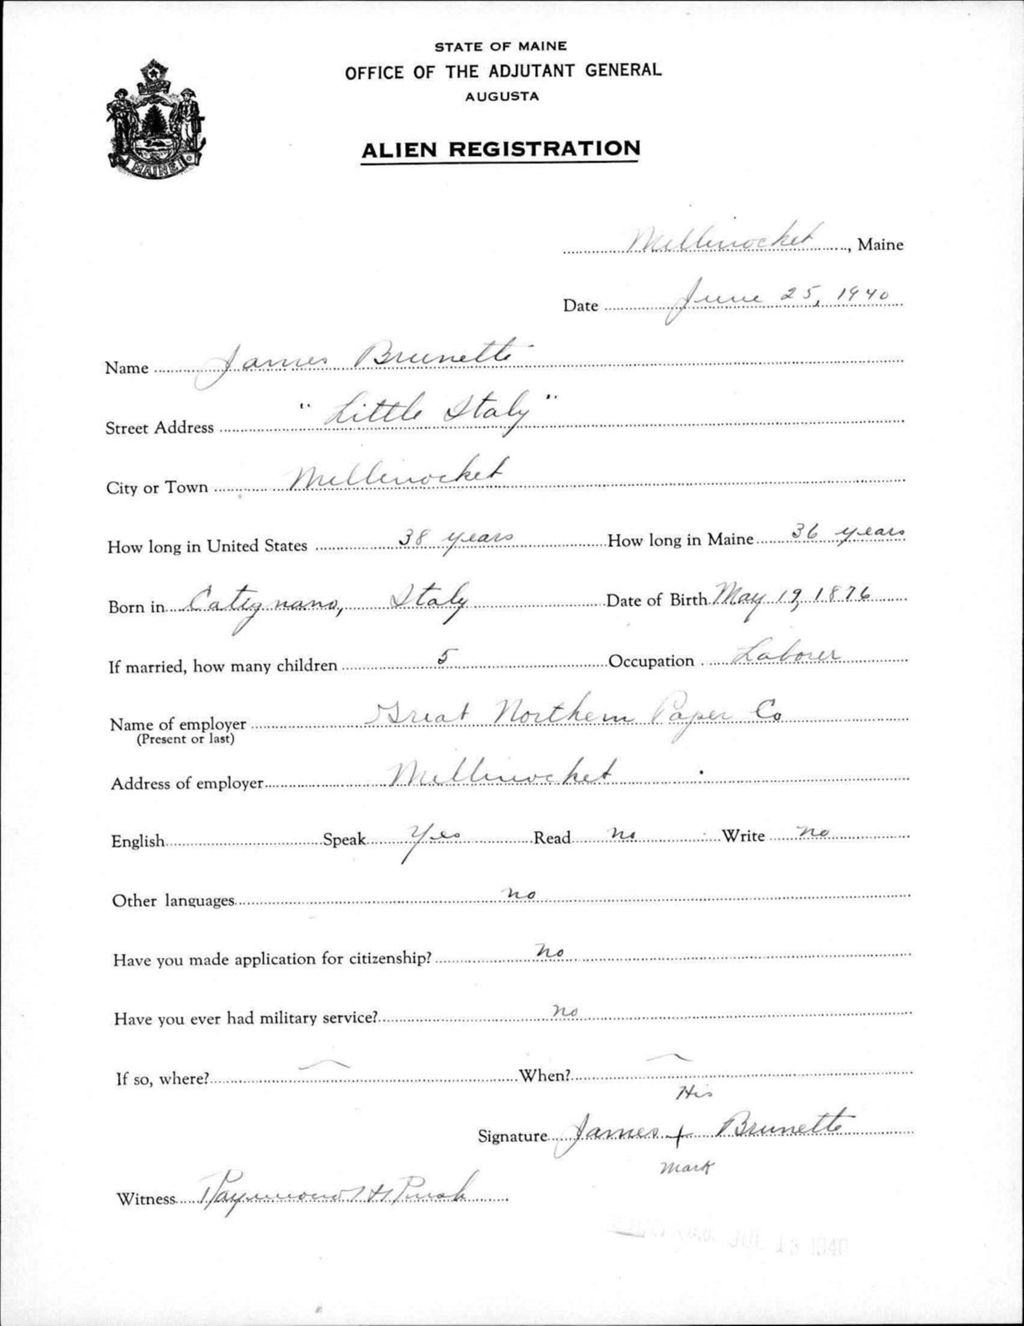 STATE OF MAINE
OFFICE OF THE ADJUTANT GENERAL
AUGUSTA
ALIEN REGISTRATION
MAINE
Millinocket, Maine
Date June 25, 1940
Name James Brunette
Street Address "Little Italy"
City or Town Millinocket
How long in United States 38 years How long in Maine 36 years
Born in Catignano, Italy Date of Birth May 19, 1876
If married, how many children 5 Occupation Laborer
Name of employer Great Northern Paper Co
(Present or last)
Address of employer Millinocket
English Speak Yes Read no Write no
Other languages no
Have you made application for citizenship? No
Have you ever had military service? no
If so, where? When?
His
Signature James + Brunette
mark
Witness Raymond H
1940